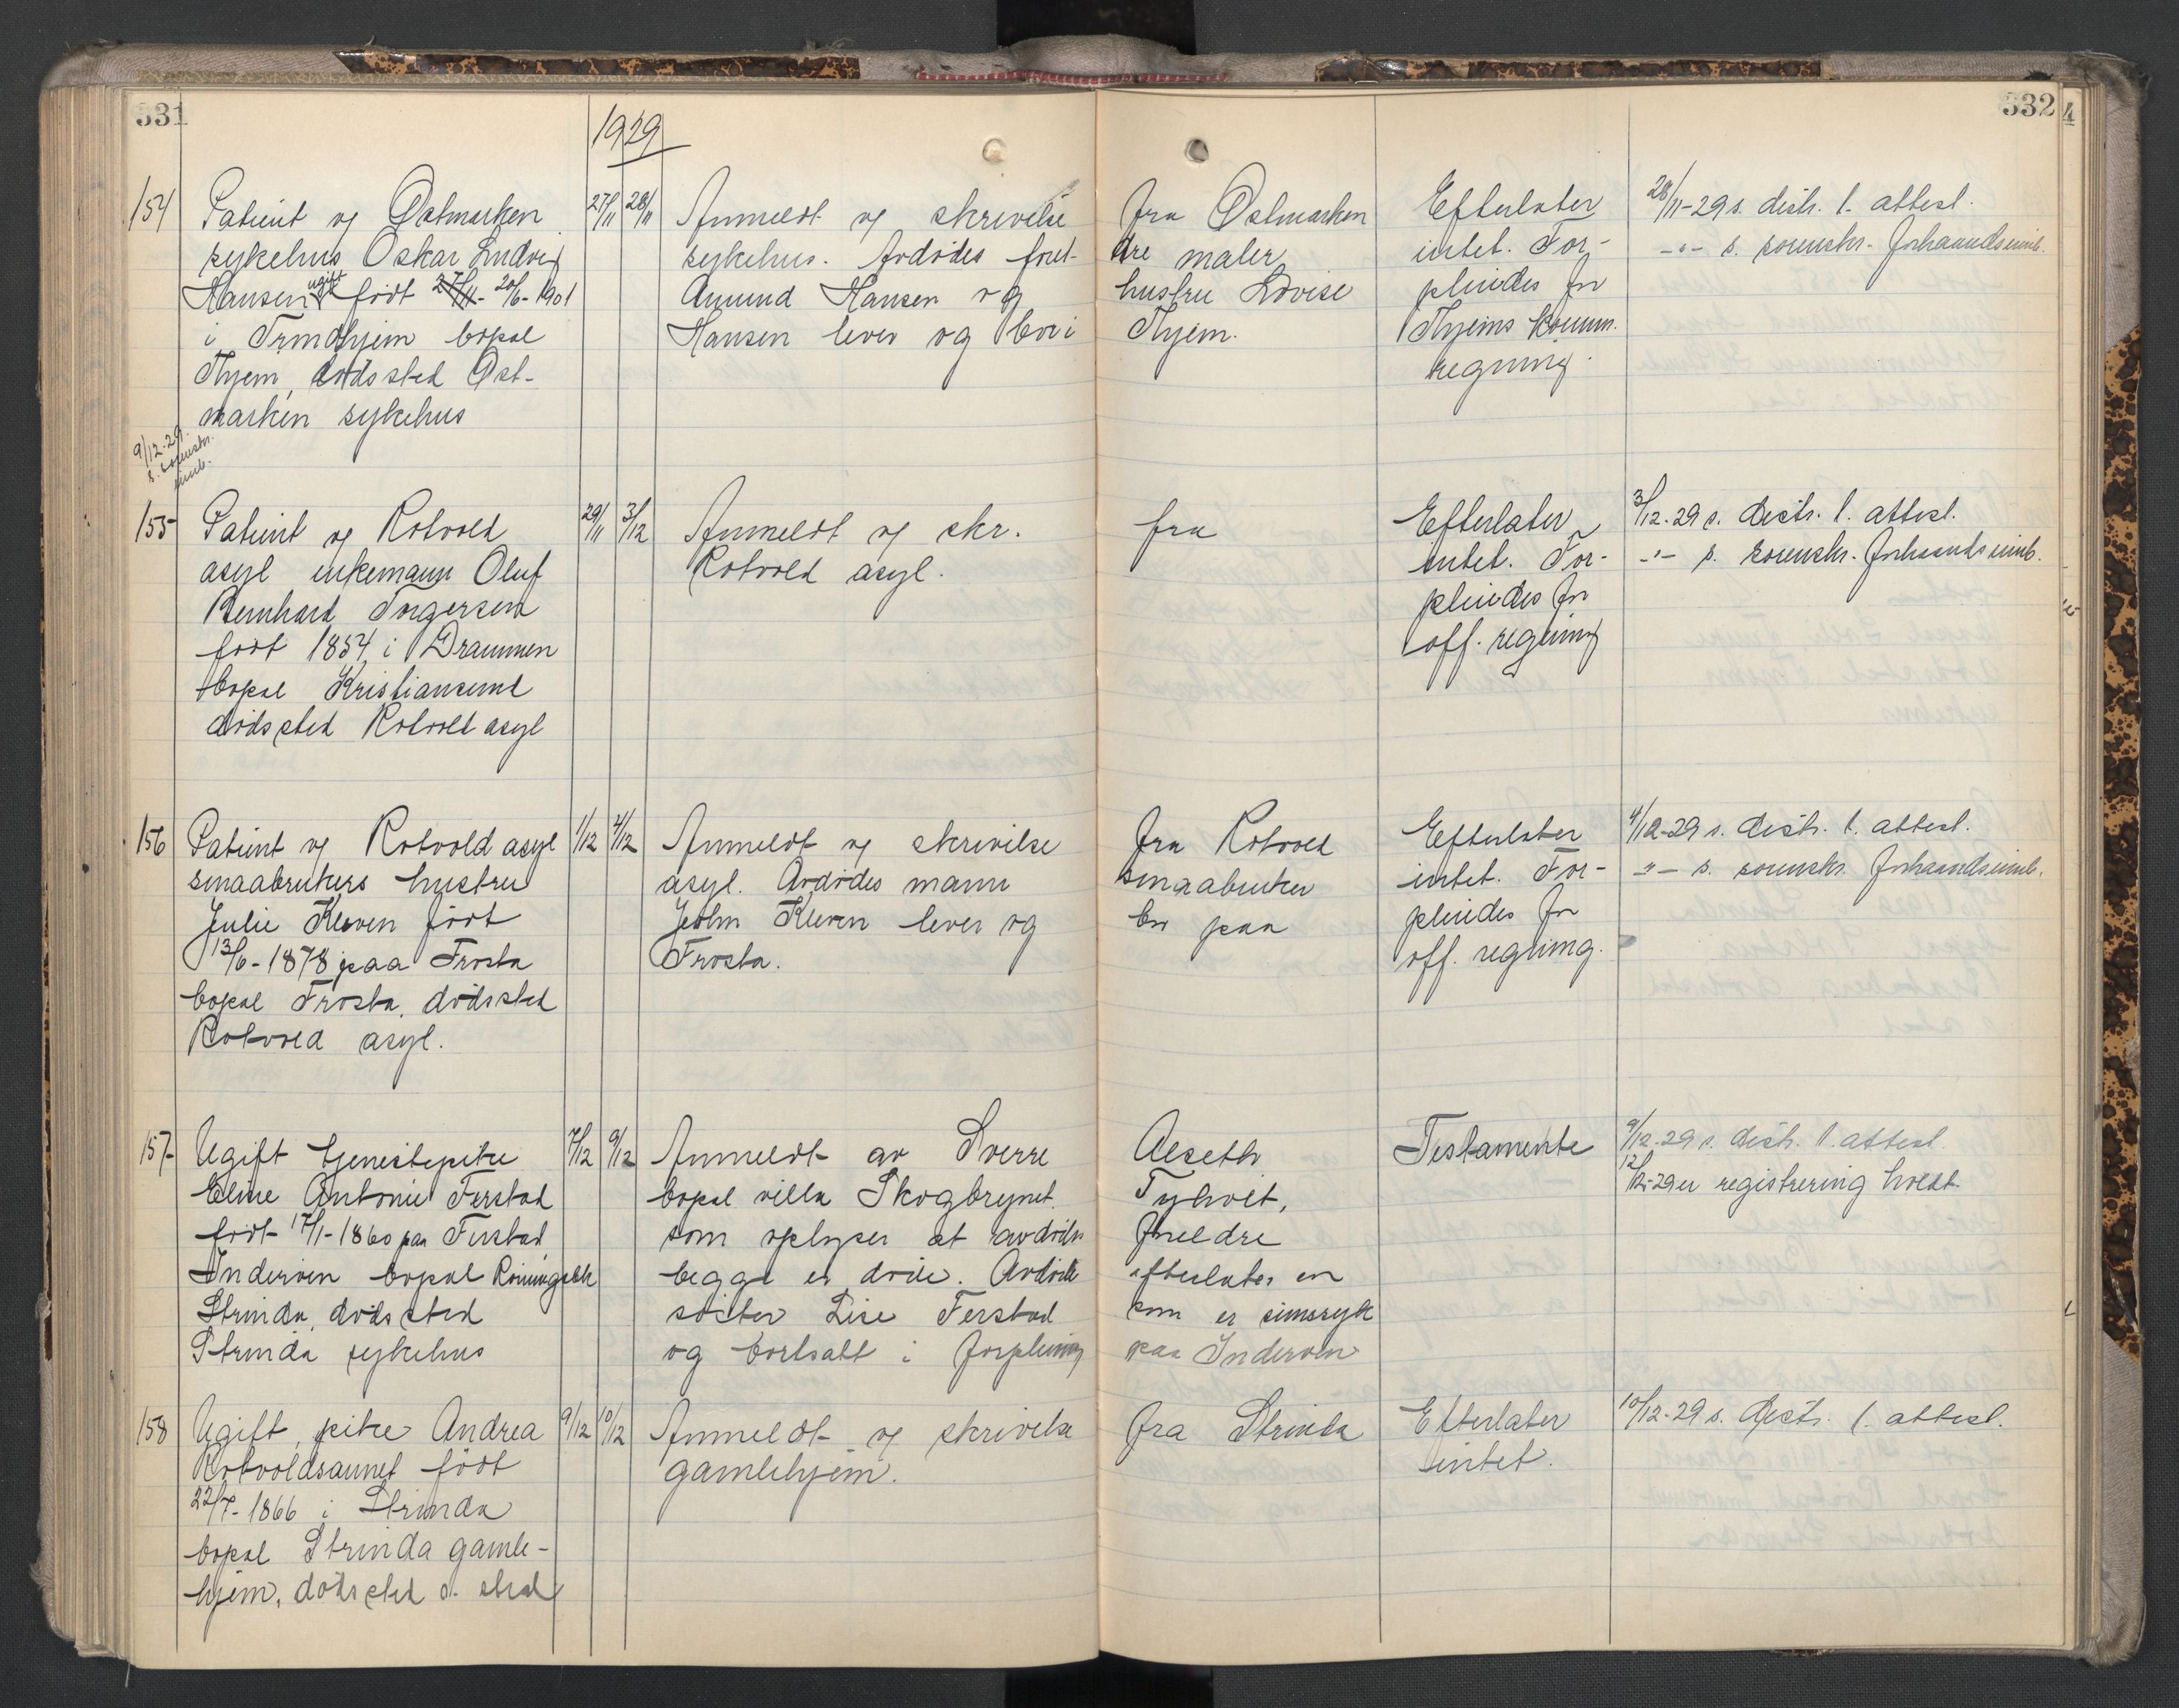 331
332
4
1929
154
Patient v/ Østmarken
sykehus Oskar Ludvig
Hansen ugift født 27/11- 20/6-1901
i Trondhjem bopæl
Thjem, dødssted Øst-
marken sykehus
27/11
28/11
Anmeldt v/ skrivelse
sykehus. Avdødes forel-
Amund Hansen og
Hansen lever og bor i
fra Østmarken
dre maler
hustru Lovise
Thjem.
Efterlater
intet. For-
pleiedes for
Thjems komm.
regning.
28/11-29 s. distr. l. attest.
-"- s. sorenskr. forhaandsinnb.
9/12-29.
s. sorenskr.
innb.
155
Patient v/ Rotvold
asyl enkemann Oluf
Bernhard Torgersen
født 1854 i Drammen
bopæl Kristiansund
dødssted Rotvold asyl
29/11
3/12
Anmeldt v/ skr.
Rotvold asyl.
fra
Efterlater
intet. For-
pleiedes for
off. regning
3/12-29 s. distr. l. attest.
-"- s. sorenskr. forhaandsinnb.
156
Patient v/ Rotvold asyl
smaabrukers hustru
Julie Kleven født
13/6-1878 paa Frosta
bopæl Frosta, dødssted
Rotvold asyl.
1/12
4/12
Anmeldt v/ skrivelse
asyl. Avdødes mann
John Kleven lever og
Frosta.
fra Rotvold
smaabruker
bor paa
Efterlater
intet. For-
pleiedes for
off. regning.
4/12-29 s. distr. l. attest.
-"- s. sorenskr. forhaandsinnb.
157
Ugift tjenestepike
Eline Antonie Ferstad
født 17/1-1860 paa Ferstad
Inderøen bopæl
Strinda, dødssted
Strinda sykehus
7/12
9/12
Anmeldt av Sverre
bopæl villa Skogbrynet
som oplyser at avdødes
begge er døde. Avdøde
søster Lise Ferstad
og bortsatt i forpleining
Aeseth
Tyholt,
foreldre
efterlater en
som er sinnssyk
paa Inderøen
Testamente
9/12-29 s. distr. l. attest.
12/12-29 er registrering holdt
158
Ugift pike Andrea
Rotvoldsaunet født
22/7-1866 i Strinda
bopæl Strinda gamle-
hjem, dødssted s. sted
9/12
10/12
Anmeldt v/ skrivelse
gamlehjem.
fra Strinda
Efterlater
intet.
10/12-29 s. distr. l. attest.